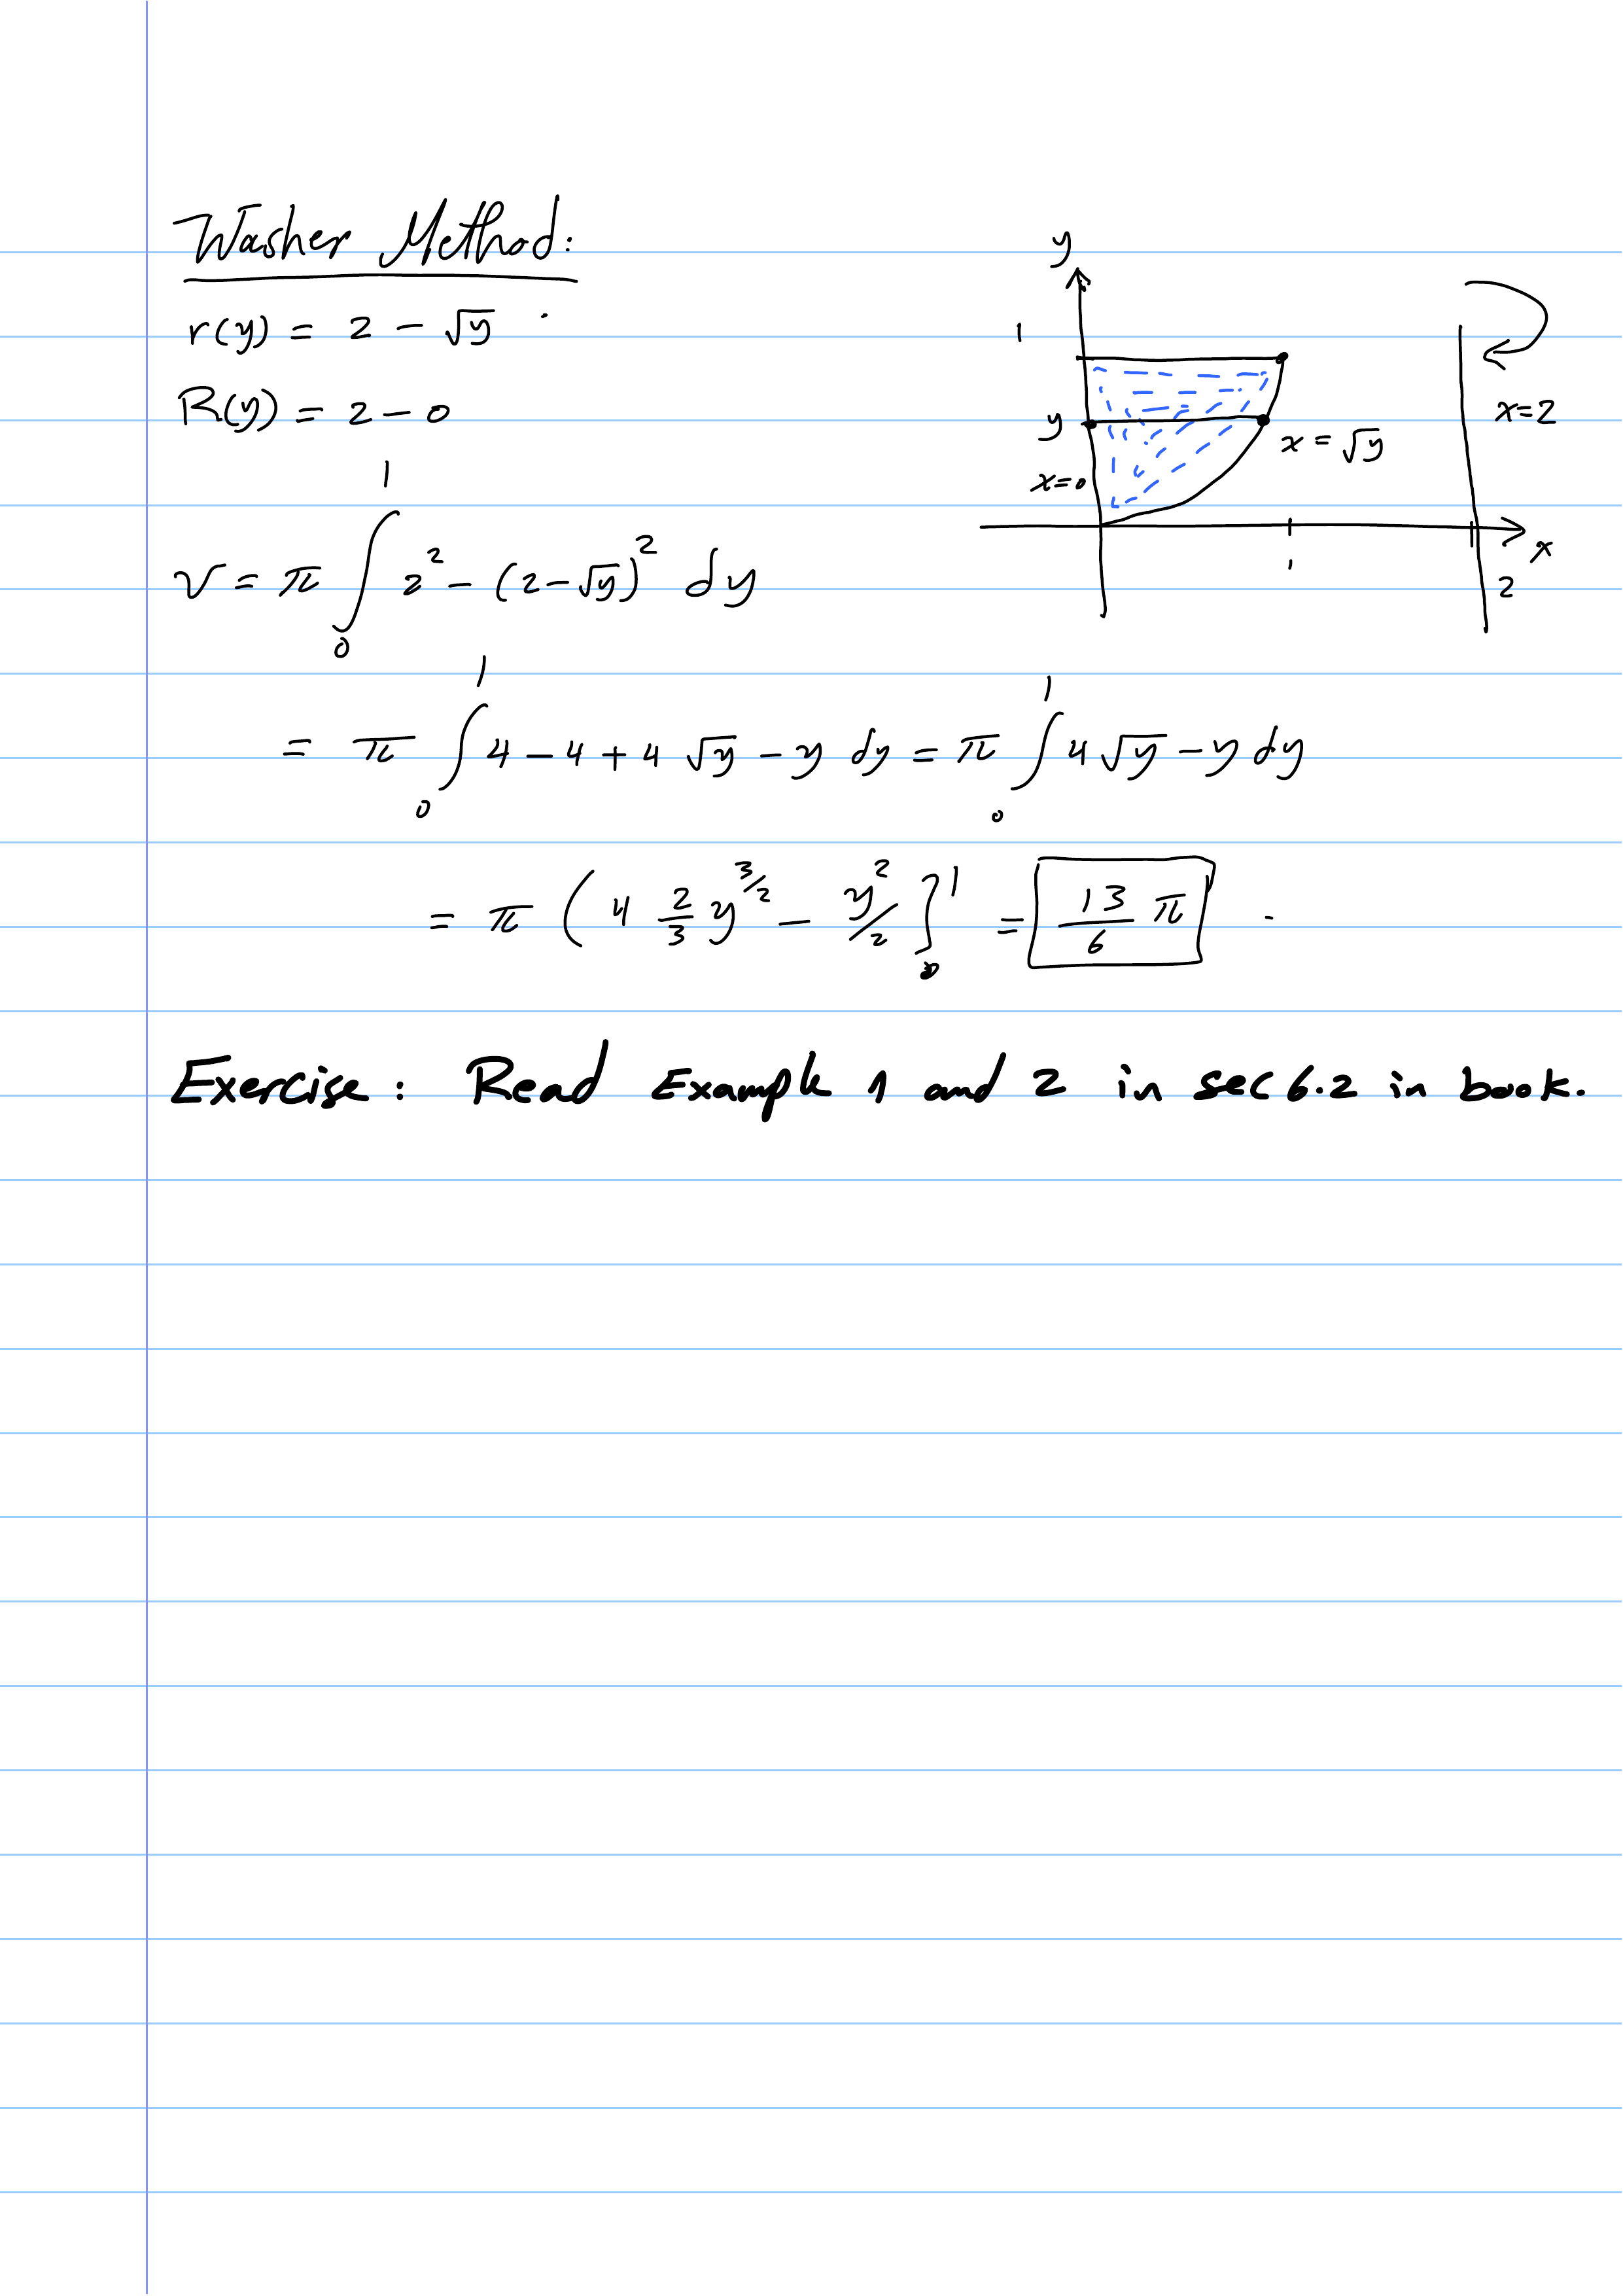 Washer Method:
r(y) = 2 − √y .
R(y) = 2 − 0
V = π ∫₀¹ 2² − (2−√y)² dy
= π ∫₀¹ 4 − 4 + 4 √y − y dy = π ∫₀¹ 4 √y − y dy
= π ( 4 2/3 y^(3/2) − y²/2 ]₀¹ = 13/6 π .
y
1
y
x=0
x = √y
x=2
x
1
2
Exercise: Read Example 1 and 2 in sec 6.2 in book.